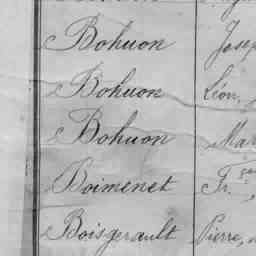 Bohuon Jose
Bohuon Léon,
Bohuon Mar
Boimenet Fr.çois,
Boisgerault Pierre,